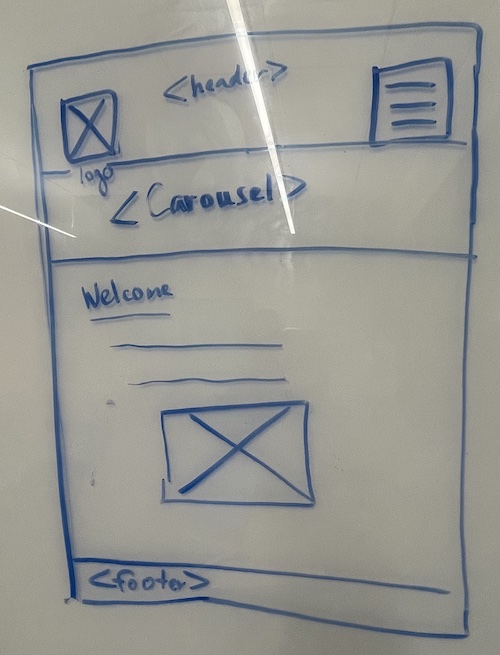 <header>
logo
<Carousel>
Welcome
<footer>